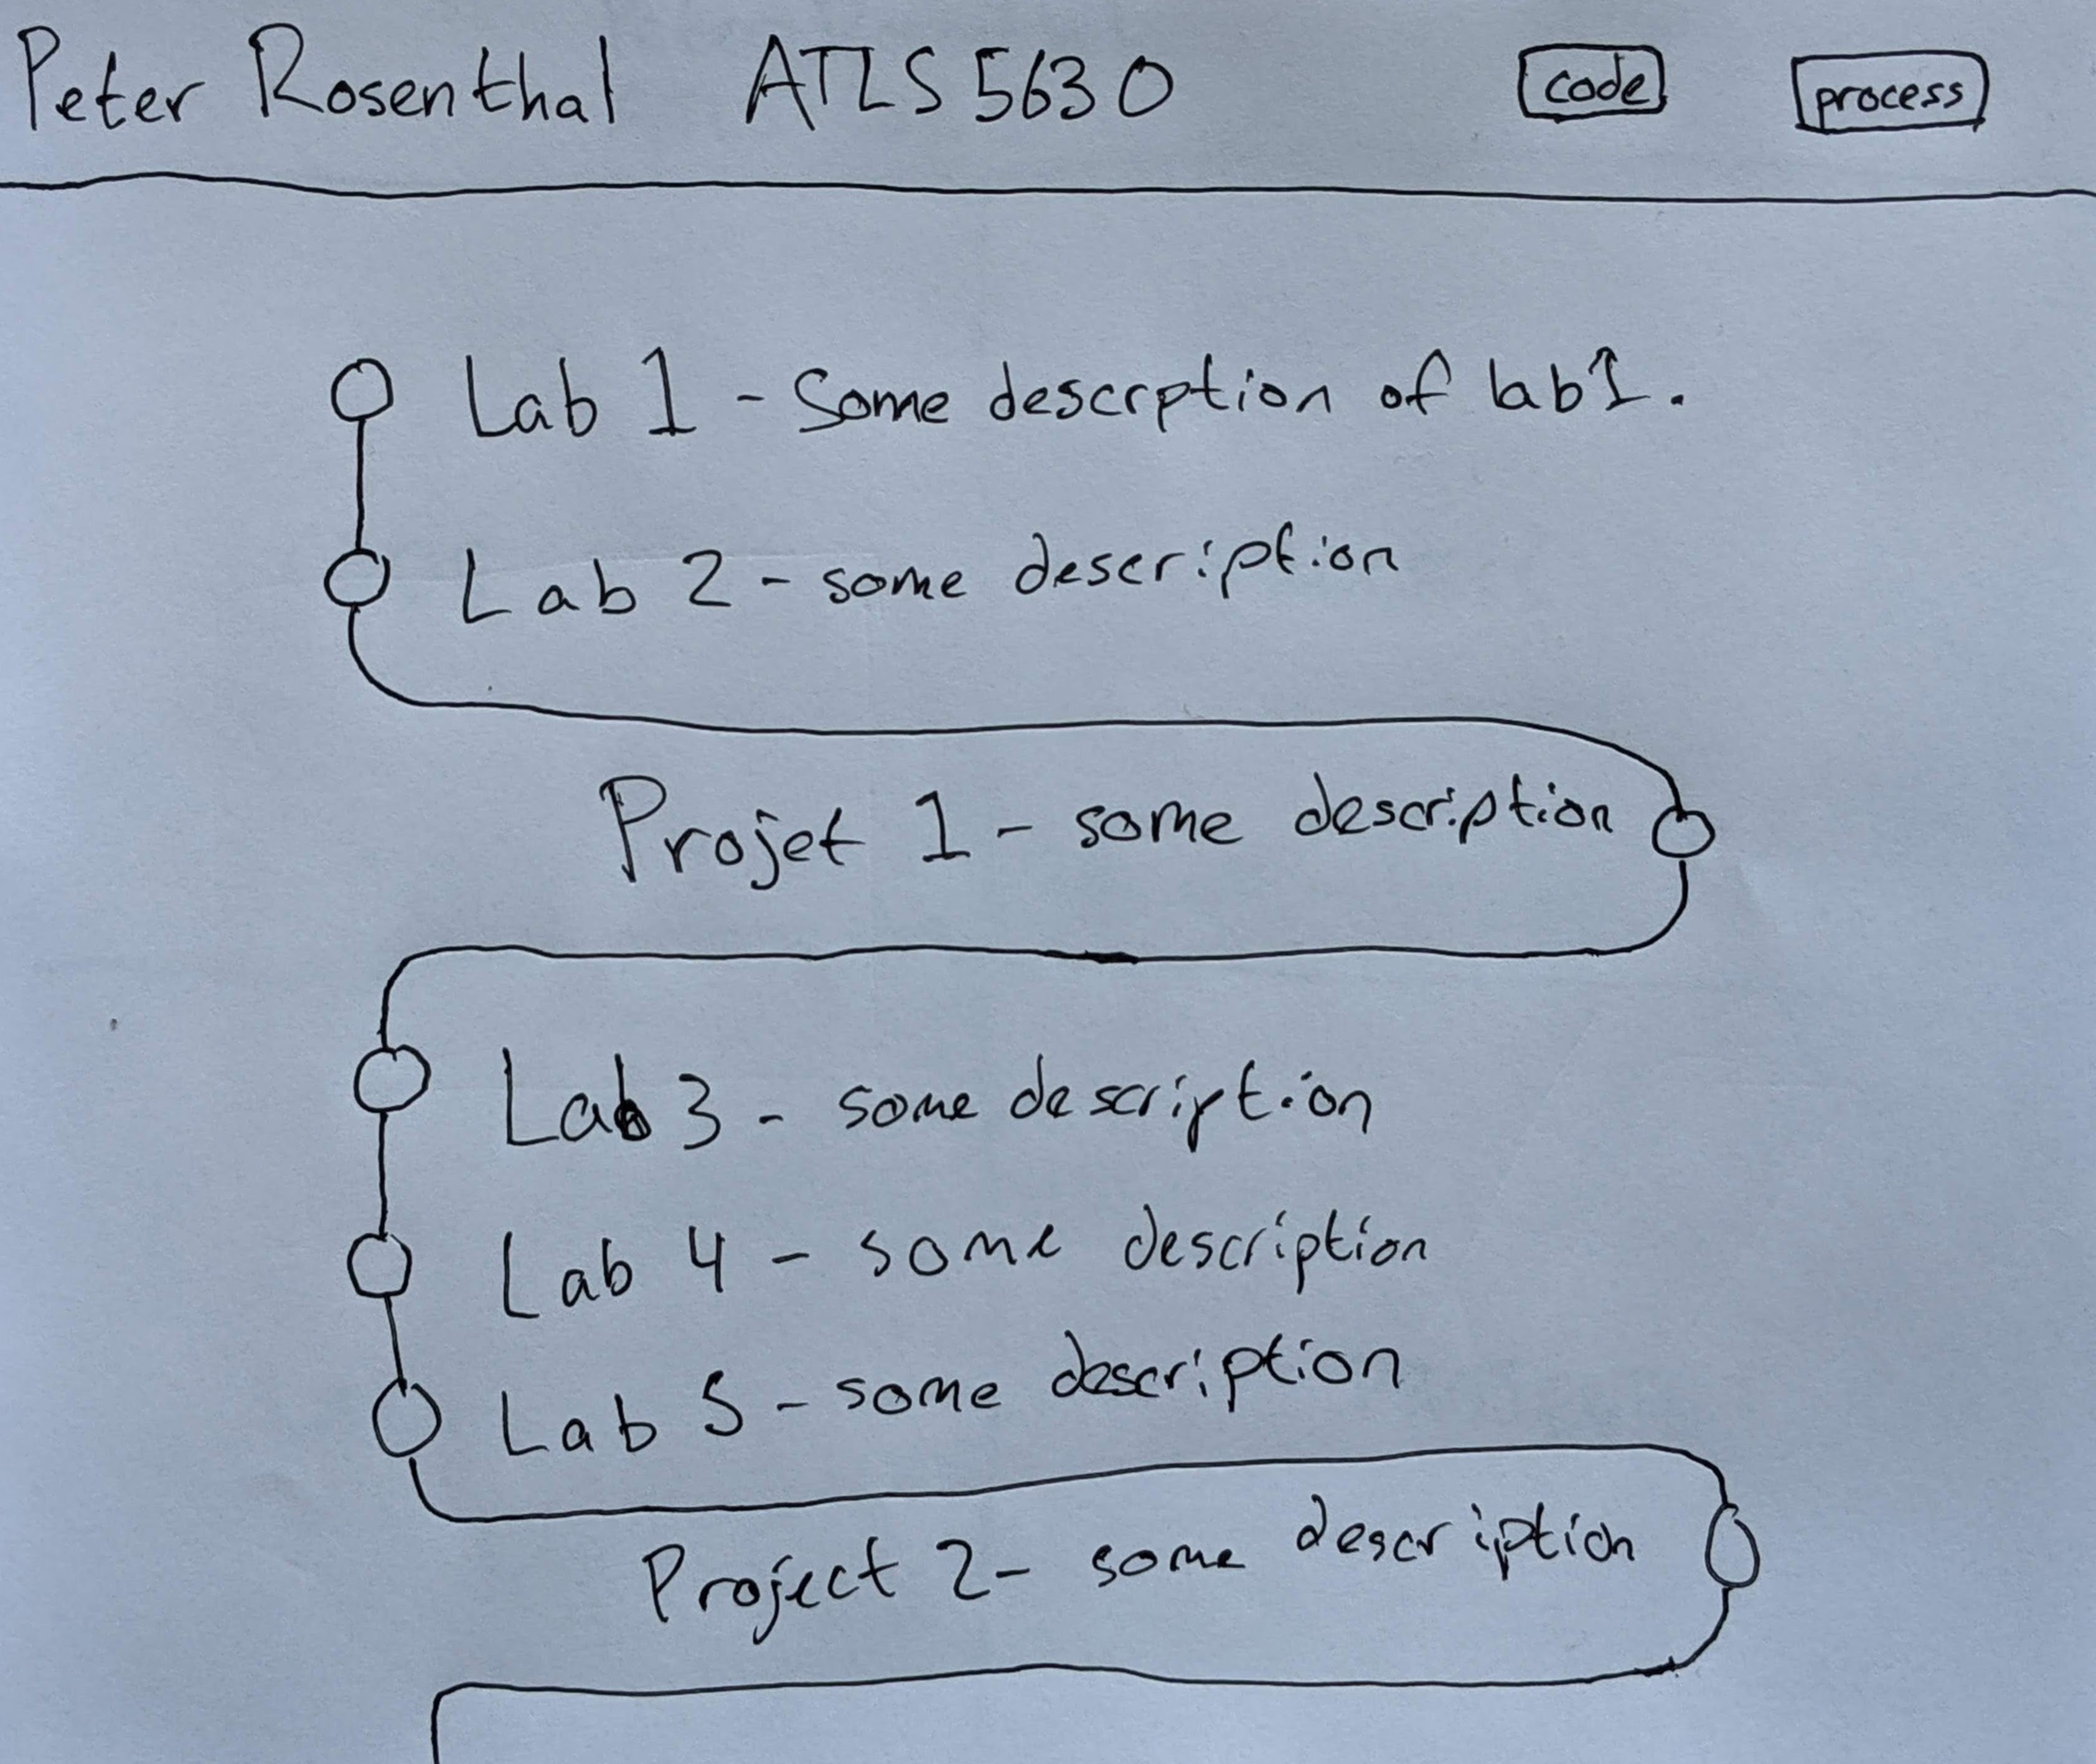 Peter Rosenthal ATLS 5630 code process
Lab 1 - Some descrption of lab 1.
Lab 2 - some description
Projet 1 - some description
Lab 3 - some description
Lab 4 - some description
Lab 5 - some description
Project 2 - some description